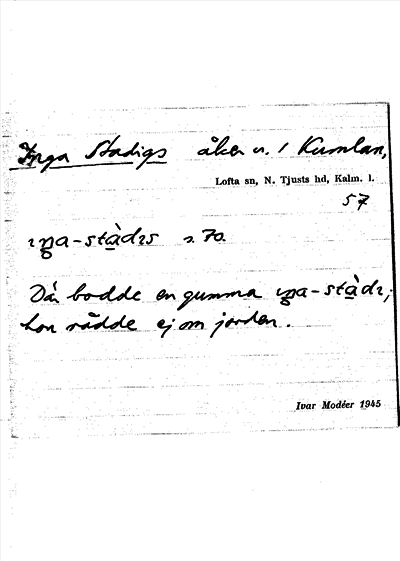 Inga Stadigs åker n. / Kumlan,
Lofta sn, N. Tjusts hd, Kalm. l.
57
ıŋa-stàdıs s. 70.
Då bodde en gumma ıŋa-stàdı,
hon rådde ej om jorden.
Ivar Modéer 1945